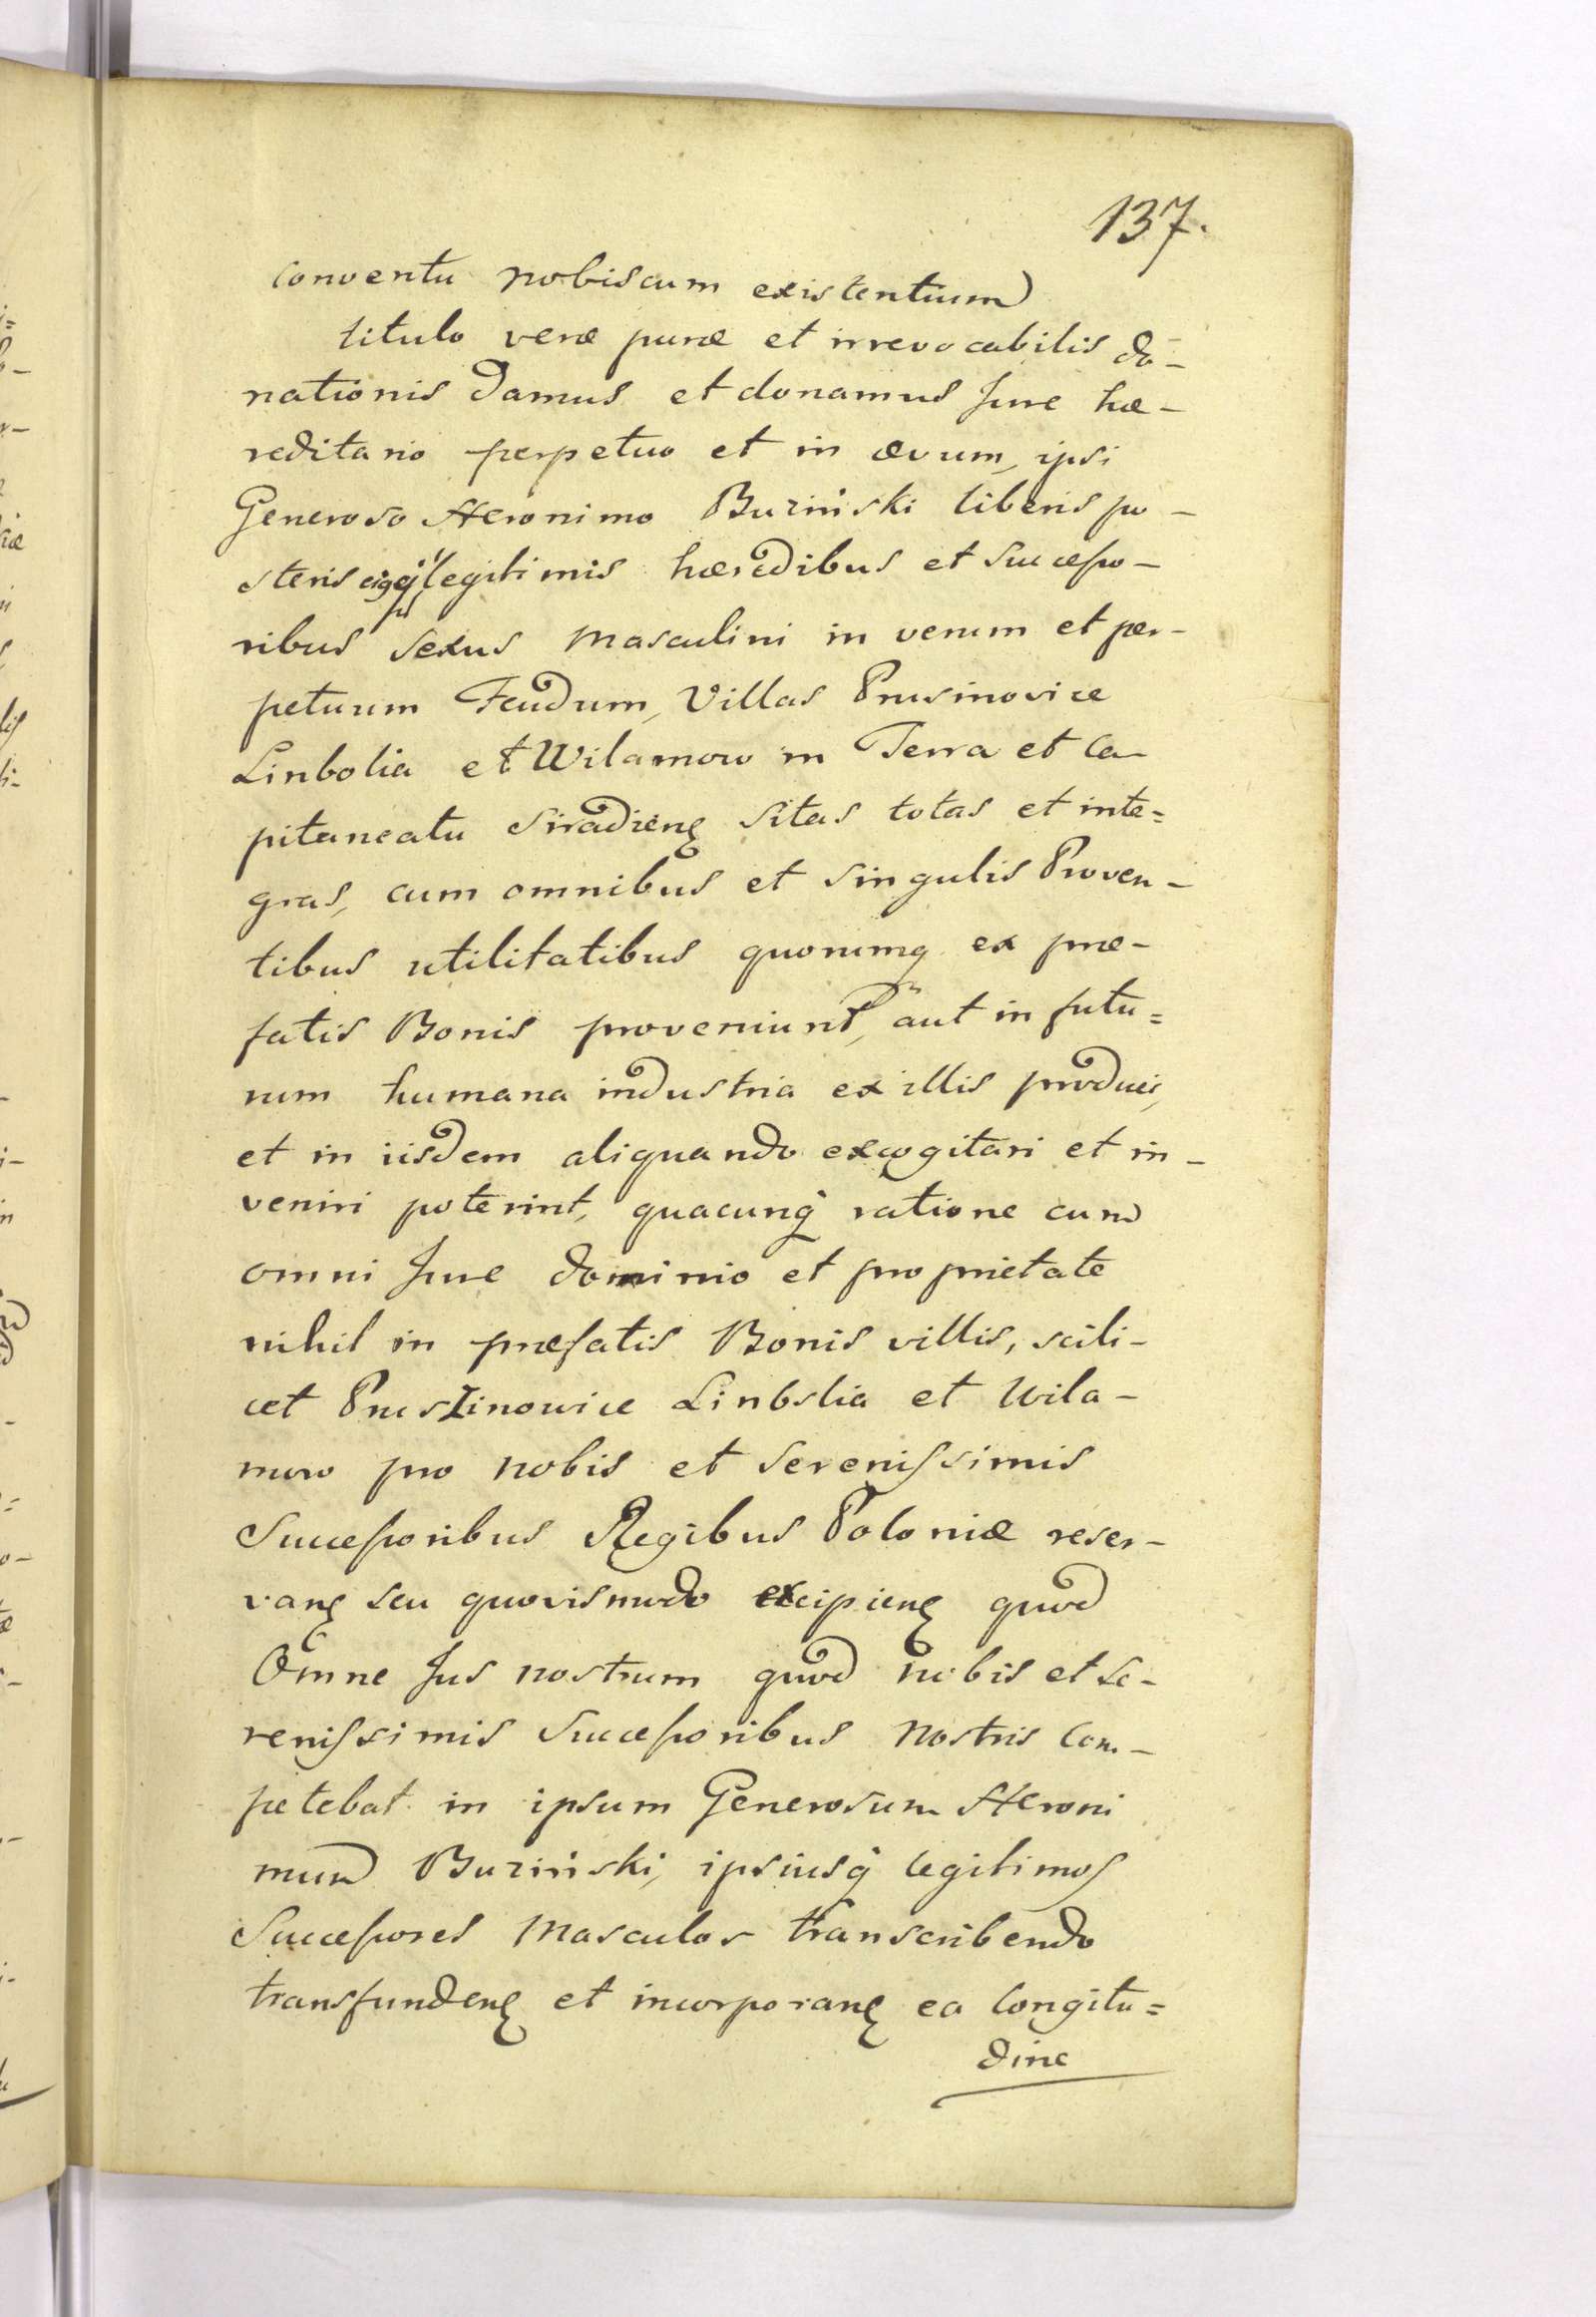 137.
conventu nobiscum existentium
titulo veræ puræ et irrevocabilis do-
nationis damus et donamus Jure hæ-
reditario perpetuo et in ævum, ipsi
Generoso Heronimo Buziński liberis po-
steris legitimis hæredibus et Succeſso-
ribus sexus masculini in verum et per-
petuum Feudum, Villas Prusinovice
Linbolia et Wilamow in Terra et Ca-
pitaneatu Siradienę sitas totas et inte=
gras, cum omnibus et singulis Proven-
tibus utilitatibus quorumq ex præ-
fatis Bonis proveniunt, aut in futu=
rum humana industria ex illis produci,
et in iisdem aliquando excogitari et in-
veniri poterint, quacunq ratione cum
omni Jure dominio et proprietate
nihil in præfatis Bonis villis, scili-
cet Pruszinowice Linbolia et Wila-
mow pro nobis et Sereniſsimis
Succeſsoribus Regibus Poloniæ reser-
vanę seu quovismodo excipienę quod
Omne Jus nostrum quod nobis et Se-
reniſsimis Succeſsoribus nostris Com-
petebat in ipsum Generosum Heroni
mum Buziński, ipsiusq legitimos
Succeſsores masculos transcribendo
transfundenę et incorporanę ea longitu=
dine